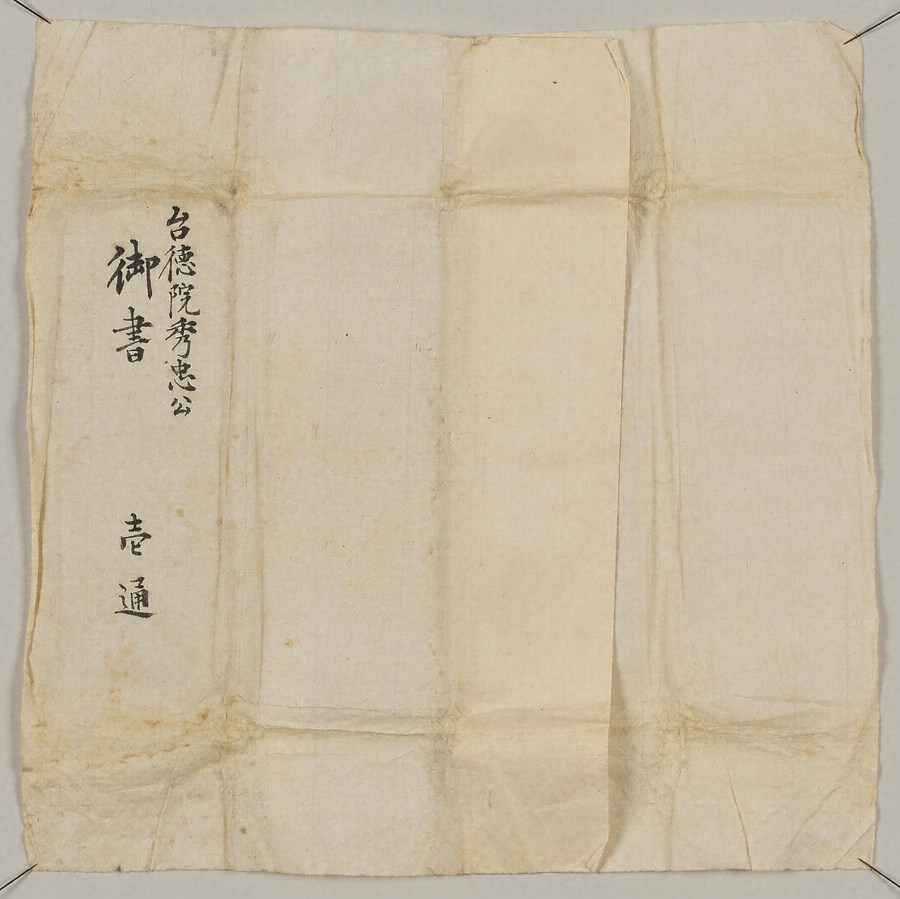 台徳院秀忠公
御書 壱通